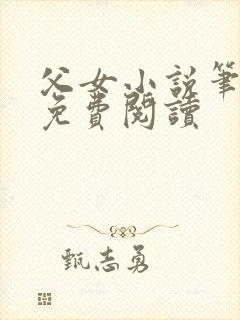 父女小説筆
免費閱讀
甄志勇